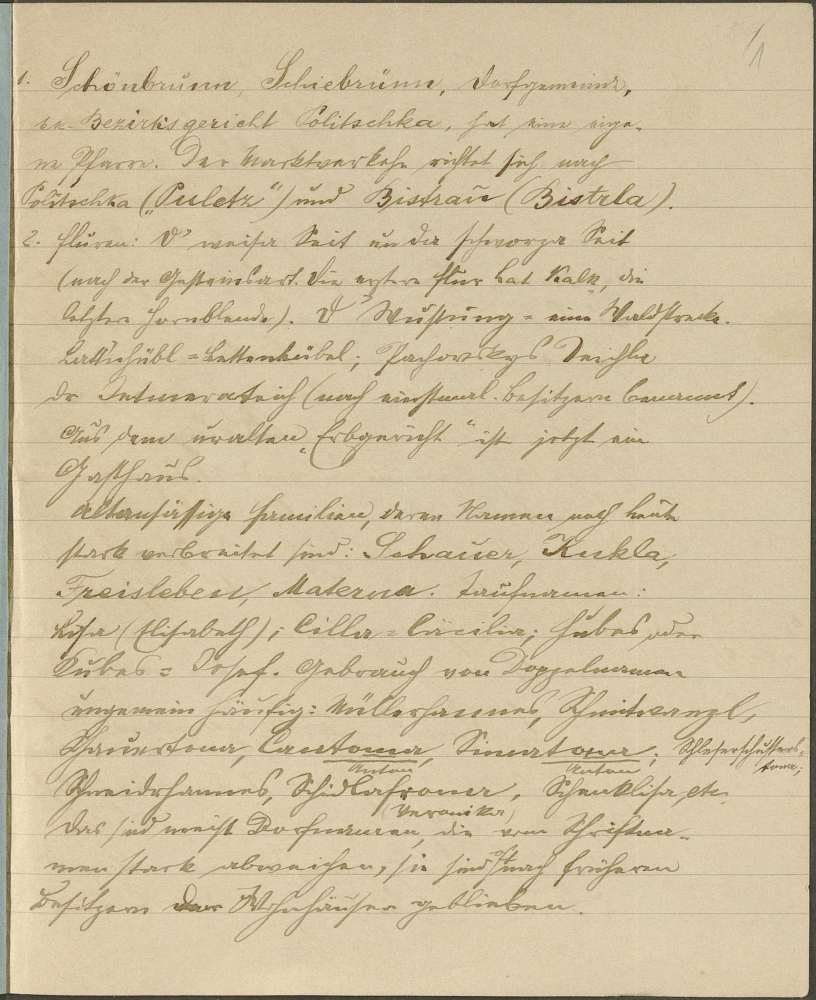 1
1. Schönbrunn, Schiebrünn, Dorfgemeinde,
Bezirksgericht Politschka, hat eine eige-
ne Pfarre. Der Marktverkehr richtet sich nach
Politschka („Puletz“) und Bistrau (Bistrla).
2. Fluren: D' weisa Seit un da schworza Seit
(nach der Gesteinsart. Die erstere Flur hat Kalk, die
letztere Hornblende). D' Wustung = eine Waldstrecke.
Lattnhübl = Lettenhübel; Pachovskys Teichla
dr Intmarateich (nach einstmal. Besitzern benannt).
Aus dem uralten „Erbgericht“ ist jetzt ein
Gasthaus.
Altansässige Familien, deren Namen noch heute
stark verbreitet sind: Schauer, Kukla,
Freisleben, Materna. Taufnamen:
Lisa (Elisabeth); Cilla = Cäcilia; Hubas oder
Kubas = Josef. Gebrauch von Doppelnamen
ungemein häufig: Müllerhannes,
Schauertona, Canttona, Simatona;
Anton Anton
Schneidrhannes, Schidlafrona, Schenklisa, etc.
(Veronika)
Das sind meist Dorfnamen, die vom Schriftna-
men stark abweichen, sie sind oft nach früheren
Besitzern der Wohnhäuser geblieben.